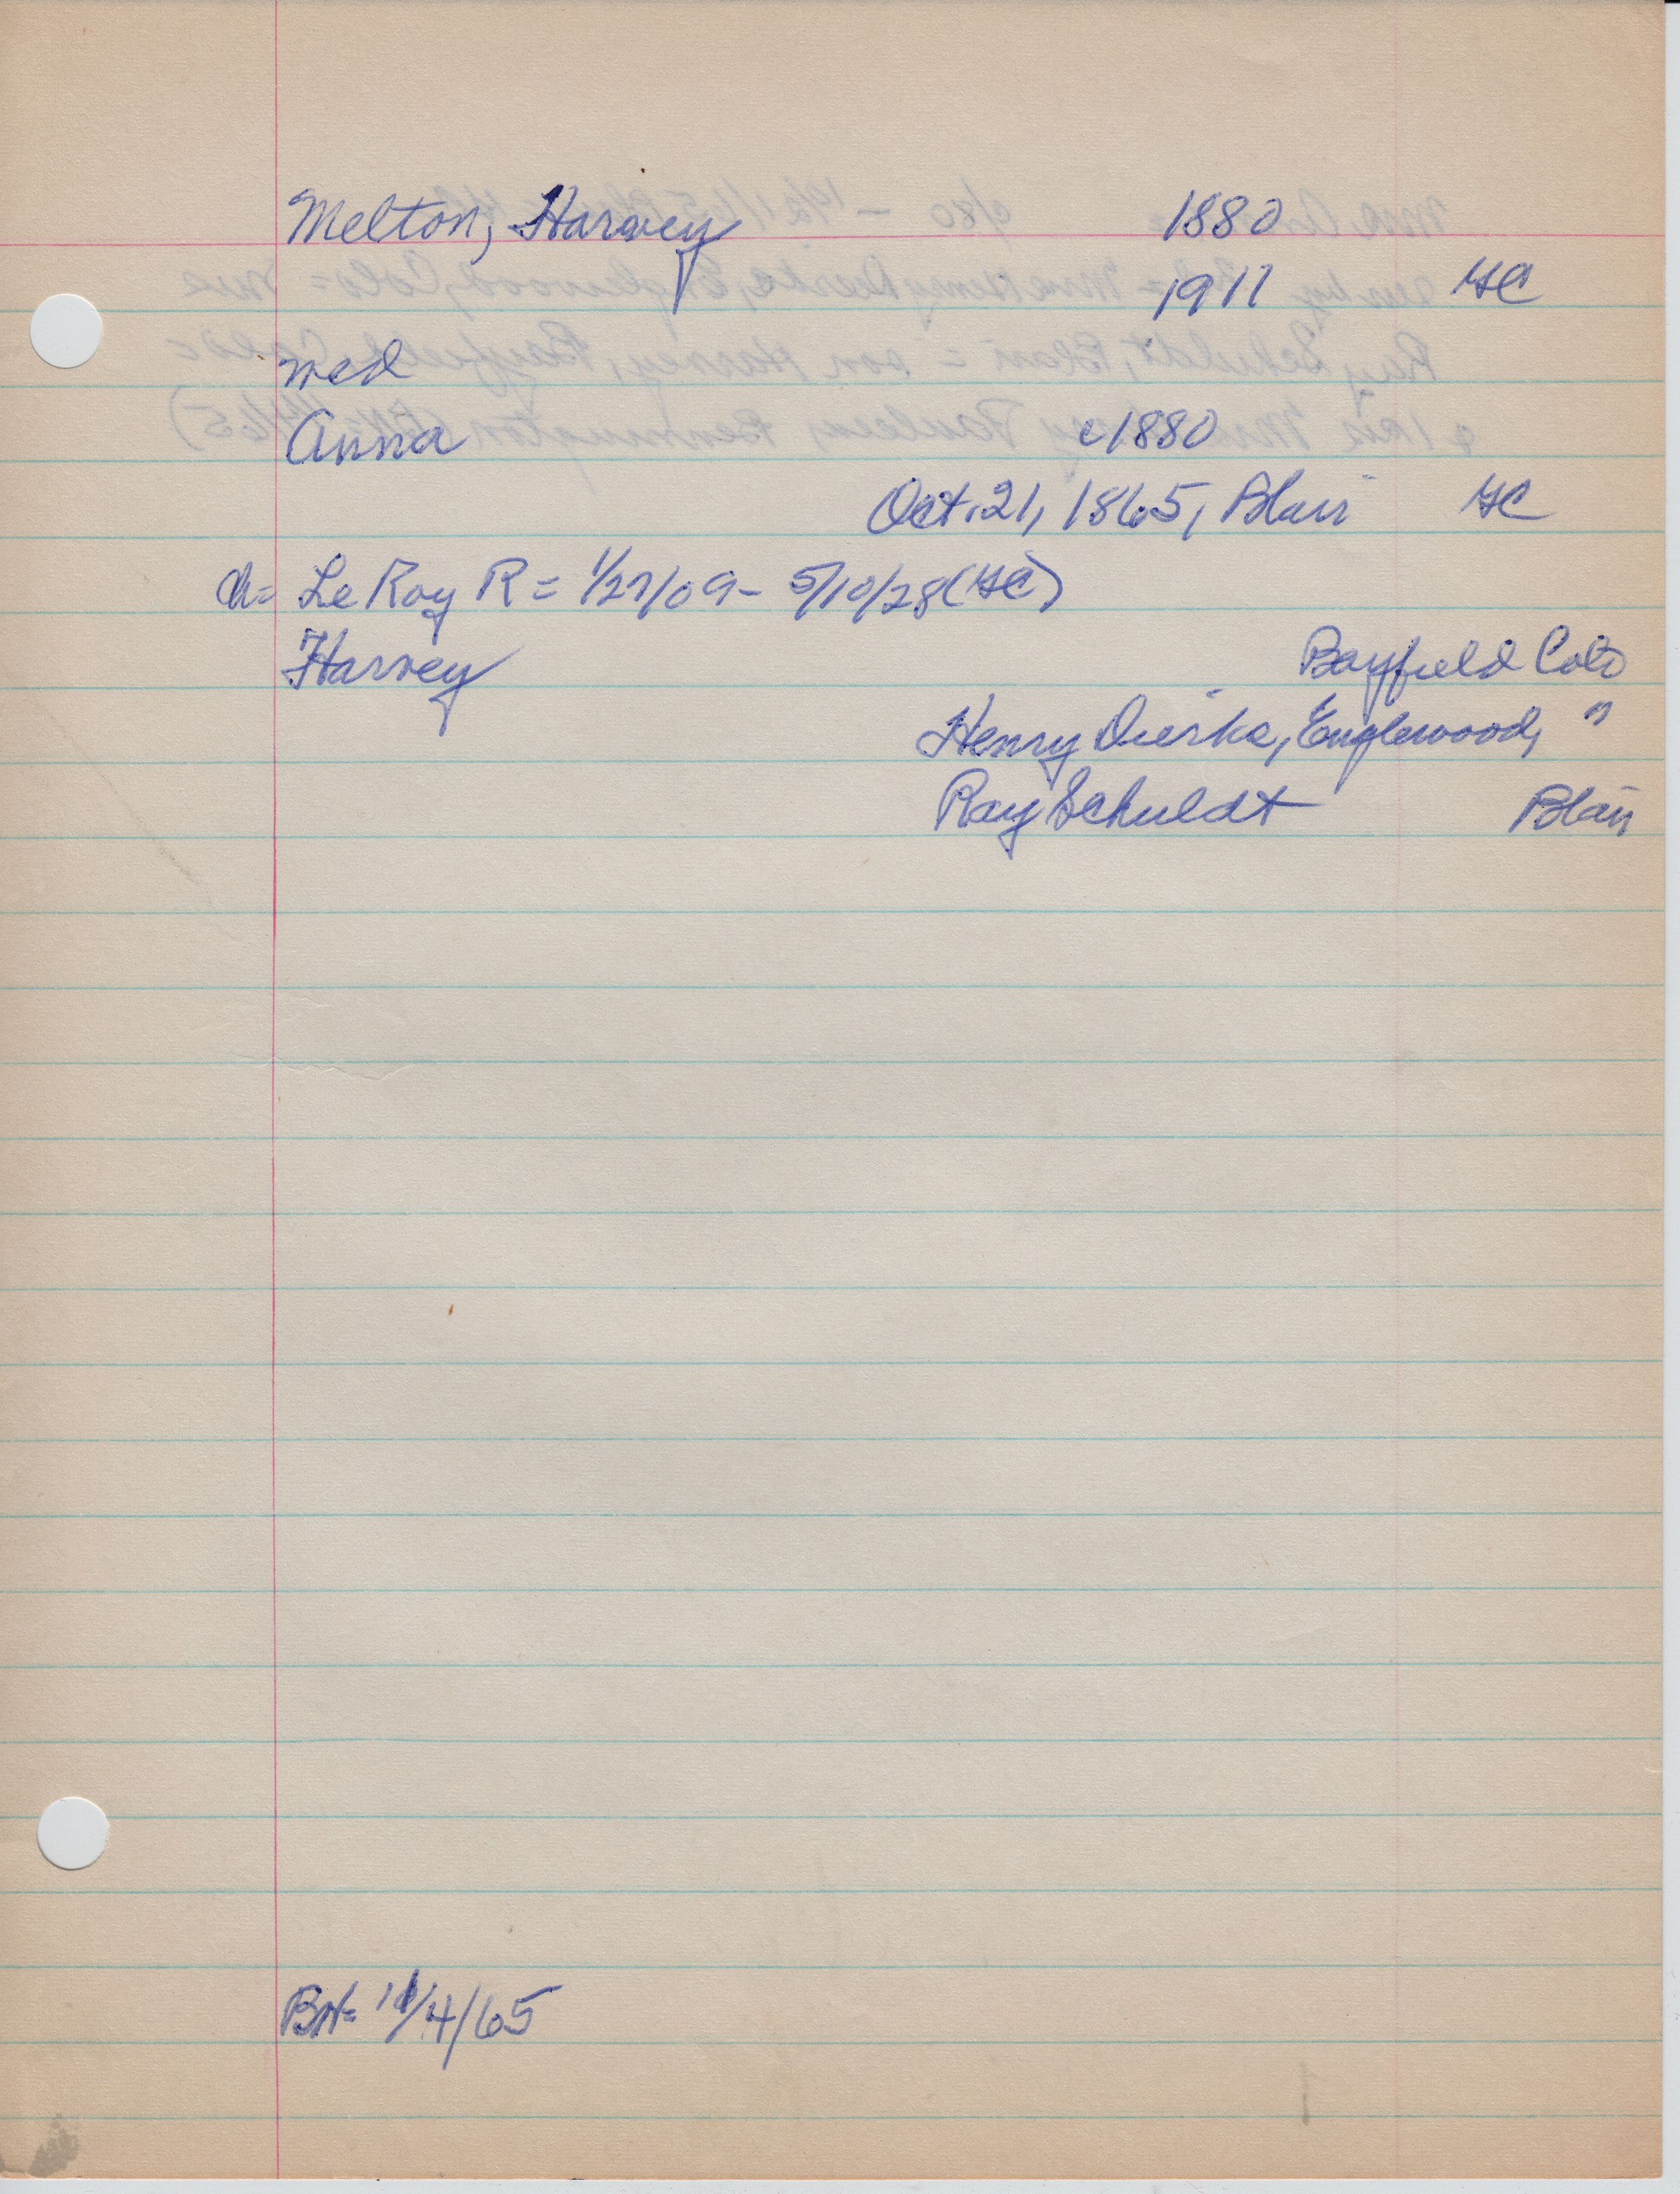 Melton, Harvey 1880
1911 GC
med
Anna c1880
Oct. 21, 1865, Blair GC
Ch= LeRoy R = 1/27/09 - 5/10/28 (GC)
Harvey Bayfield Colo
Henry Dierks, Englewood, "
Ray Schuldt Blair
11/4/65